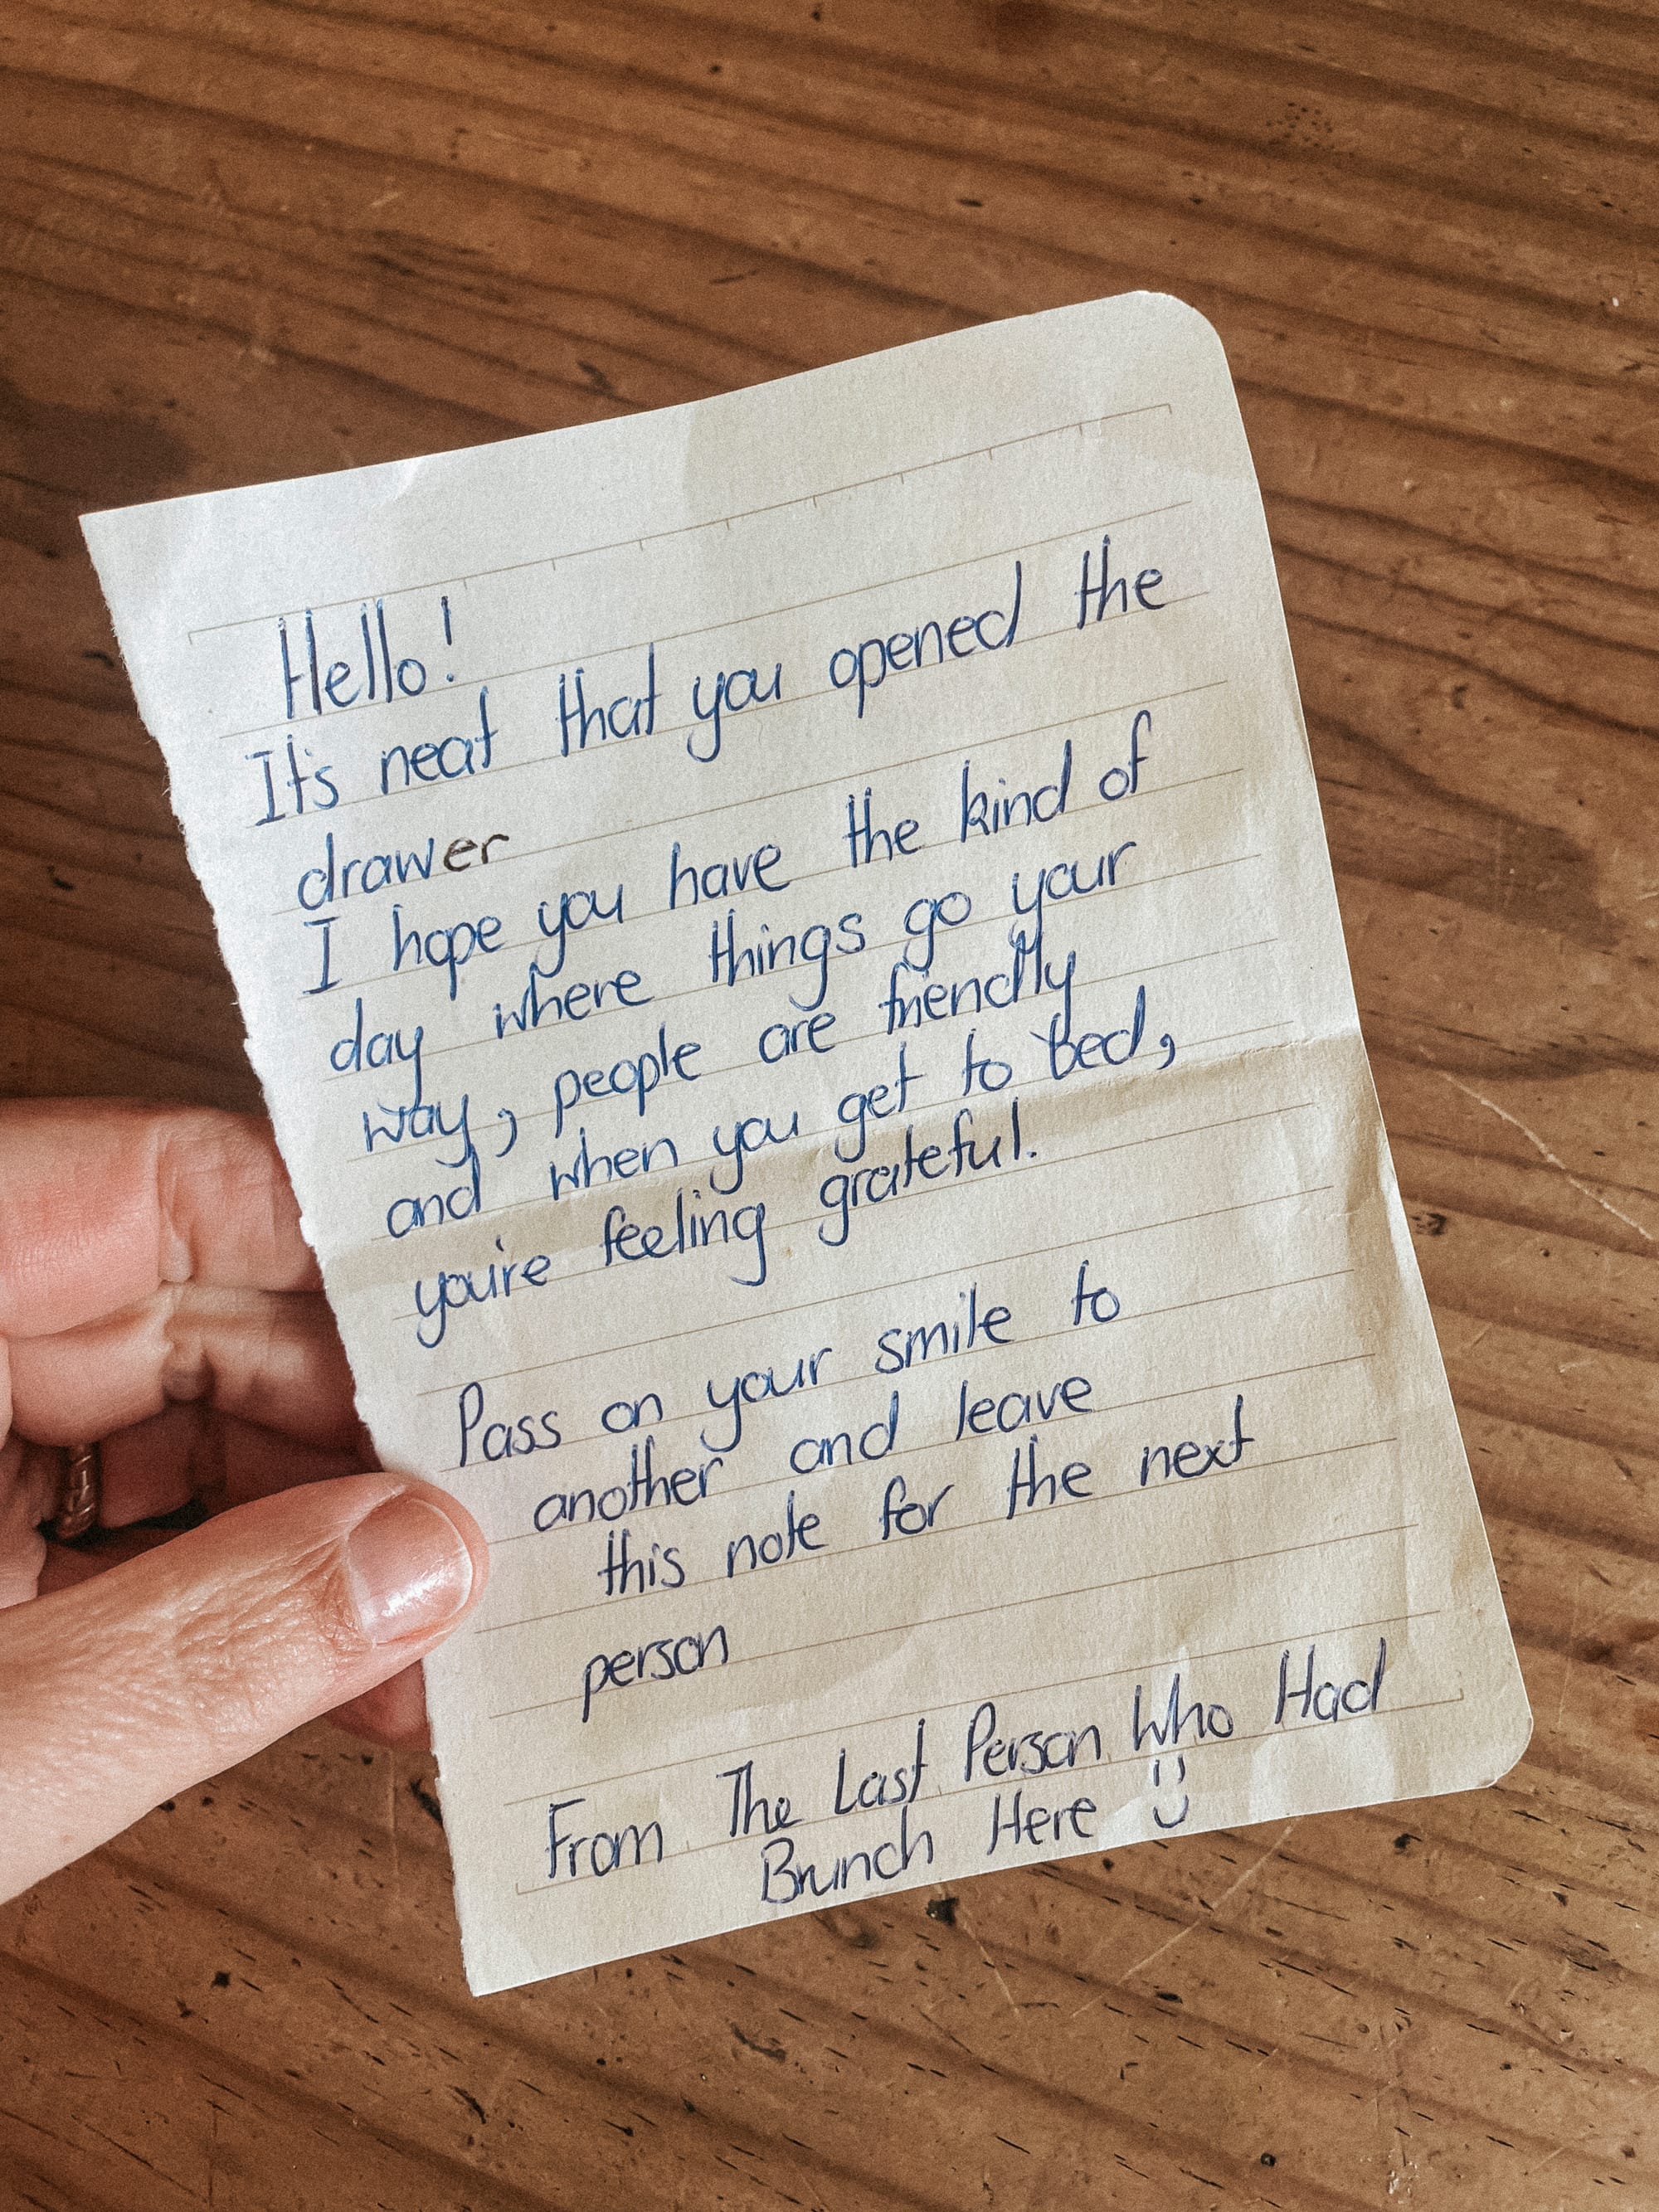 Hello!
It's neat that you opened the
drawer
I hope you have the kind of
day where things go your
way, people are friendly
and when you get to bed,
you're feeling grateful.
Pass on your smile to
another and leave
this note for the next
person
From The Last Person Who Had
Brunch Here :)